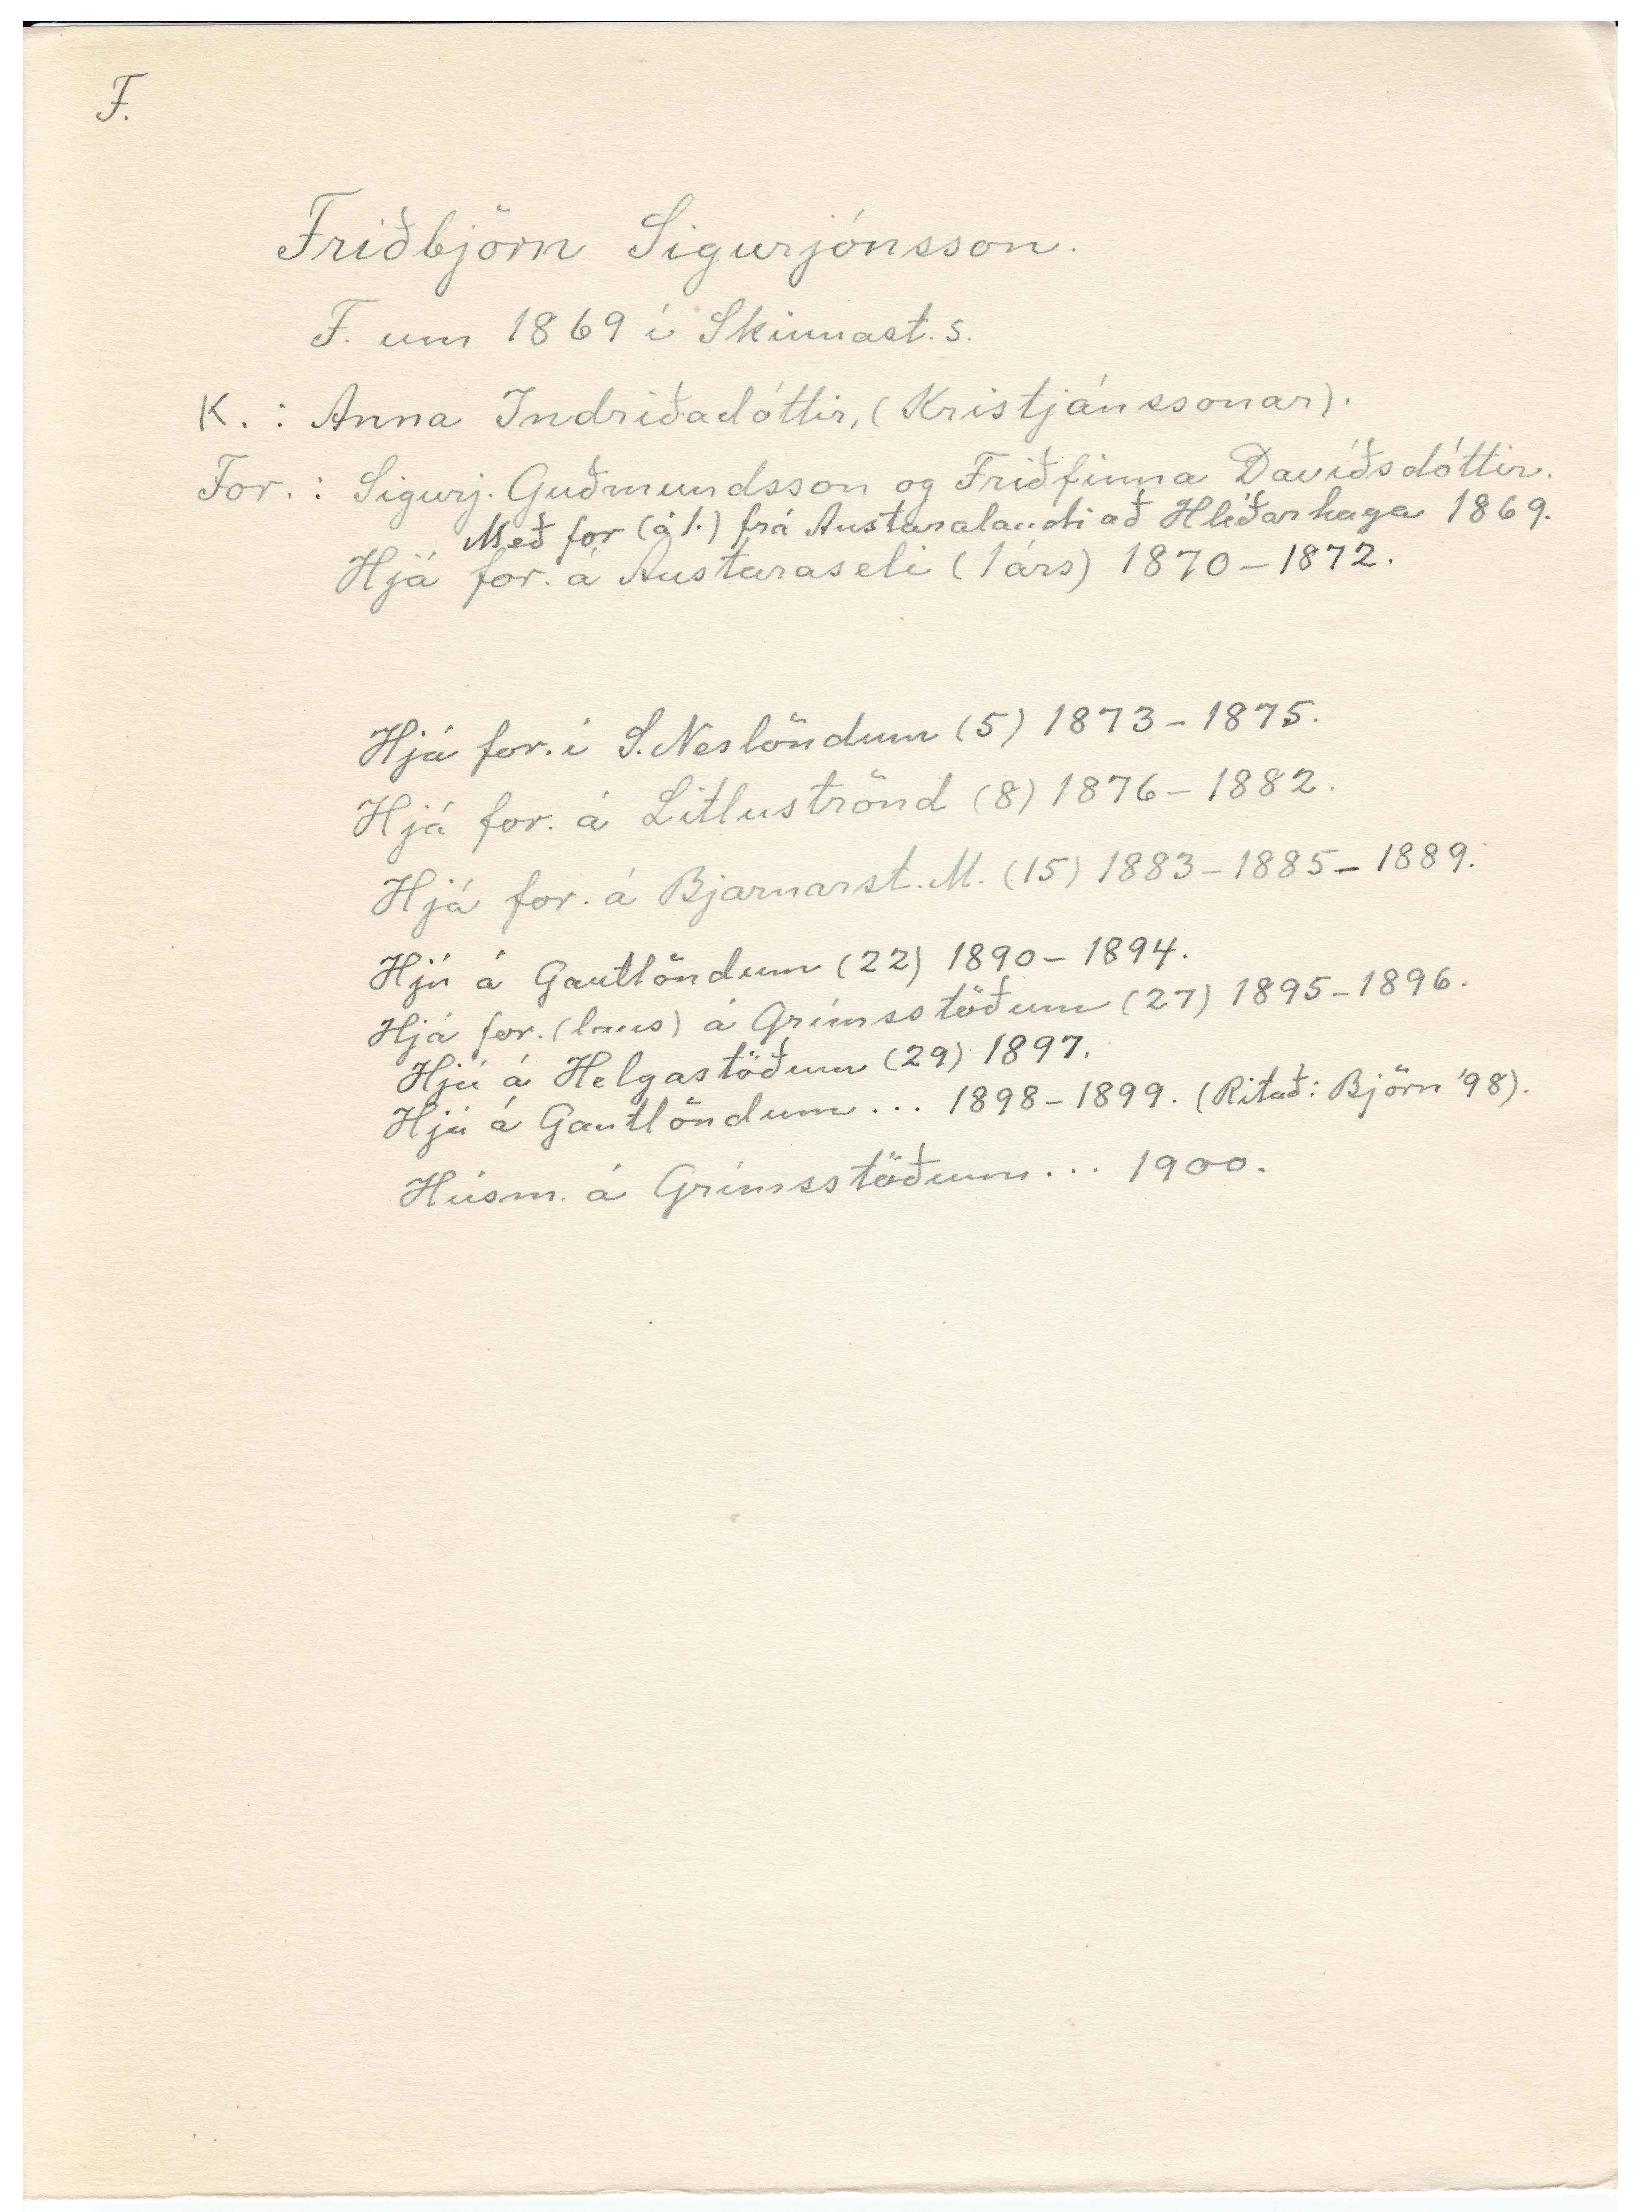 F.
Friðbjörn Sigurjónsson.
F. um 1869 í Skinnast. s.
K. : Anna Indriðadóttir, (Kristjánssonar).
For. : Sigurj. Guðmundsson og Friðfinna Davíðsdóttir.
Með for (á 1.) frá Austaralandi að Hlíðarhaga 1869.
Hjá for. á Austaraseli (1 árs) 1870 – 1872.
Hjá for. í S. Neslöndum (5) 1873 – 1875.
Hjá for. á Litluströnd (8) 1876 – 1882.
Hjá for. á Bjarnarst. M. (15) 1883 – 1885 – 1889.
Hjú á Gautlöndum (22) 1890 – 1894.
Hjá for. (laus) á Grímsstöðum (27) 1895 – 1896.
Hjú á Helgastöðum (29) 1897.
Hjú á Gautlöndum ... 1898 – 1899. (Ritað: Björn '98).
Húsm. á Grímsstöðum ... 1900.